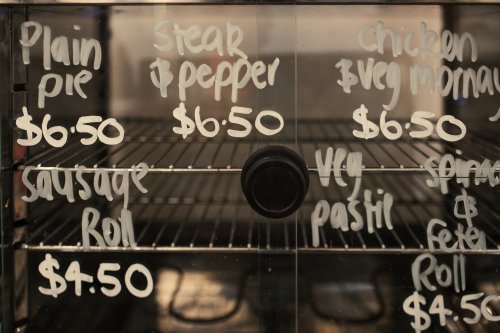 Plain
pie
$6.50
Steak
& pepper
$6.50
chicken
& veg mornay
$6.50
sausage
Roll
$4.50
veg
pastil
spinac
&
feter
Roll
$4.50